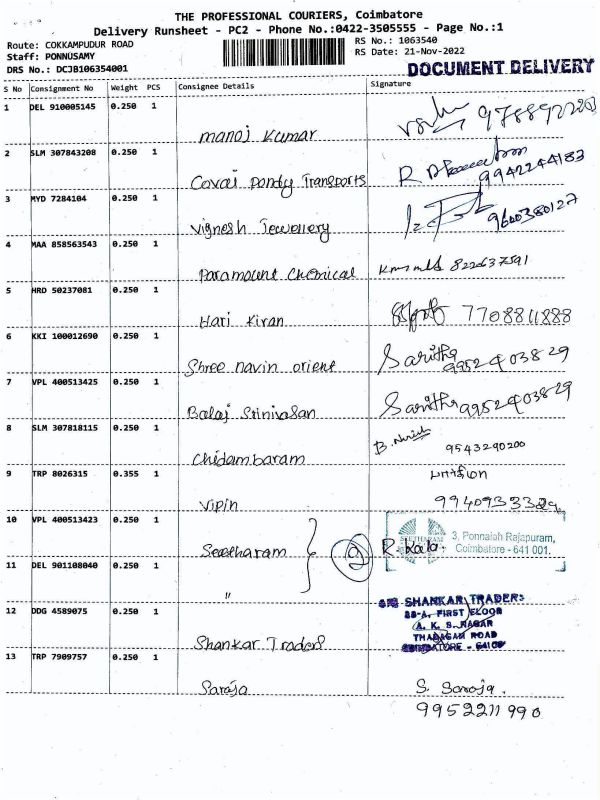 THE PROFESSIONAL COURIERS, Coimbatore
Delivery Runsheet - PC2 - Phone No.:0422-3505555 - Page No.:1
Route: COKKAMPUDUR ROAD
Staff: PONNUSAMY
DRS No.: DCJB106354001
RS No.: 1063540
RS Date: 21-Nov-2022
DOCUMENT DELIVERY
S No Consignment No Weight PCS Consignee Details Signature
1 DEL 910005145 0.250 1
manoj Kumar
2 SLM 307843208 0.250 1
Covai Pondy Transports
9942244183
3 MYD 7284104 0.250 1
Vignesh Jewellery
9600380127
4 MAA 858563543 0.250 1
Paramount Chemical 8222637591
5 HRD 50237081 0.250 1
Hari Kiran 7708811888
6 KKI 100012690 0.250 1
Shree navin orient Saritha
9952403829
7 VPL 400513425 0.250 1
Balaj Srinivasan Saritha 9952403829
8 SLM 307818115 0.250 1
Chidambaram 9543290200
9 TRP 8026315 0.355 1
Vipin
10 VPL 400513423 0.250 1
Seetharam 2 R. Kala.
SEETHARAM
3, Ponnaiah Rajapuram,
Coimbatore - 641 001.
11 DEL 901108040 0.250 1
"
12 DDG 4589075 0.250 1
Shankar Traders
SHANKAR TRADERS
28-A, FIRST FLOOR
A. K. S. NAGAR
THADAGAM ROAD
13 TRP 7909757 0.250 1
Saroja S. Saroja.
9952211990